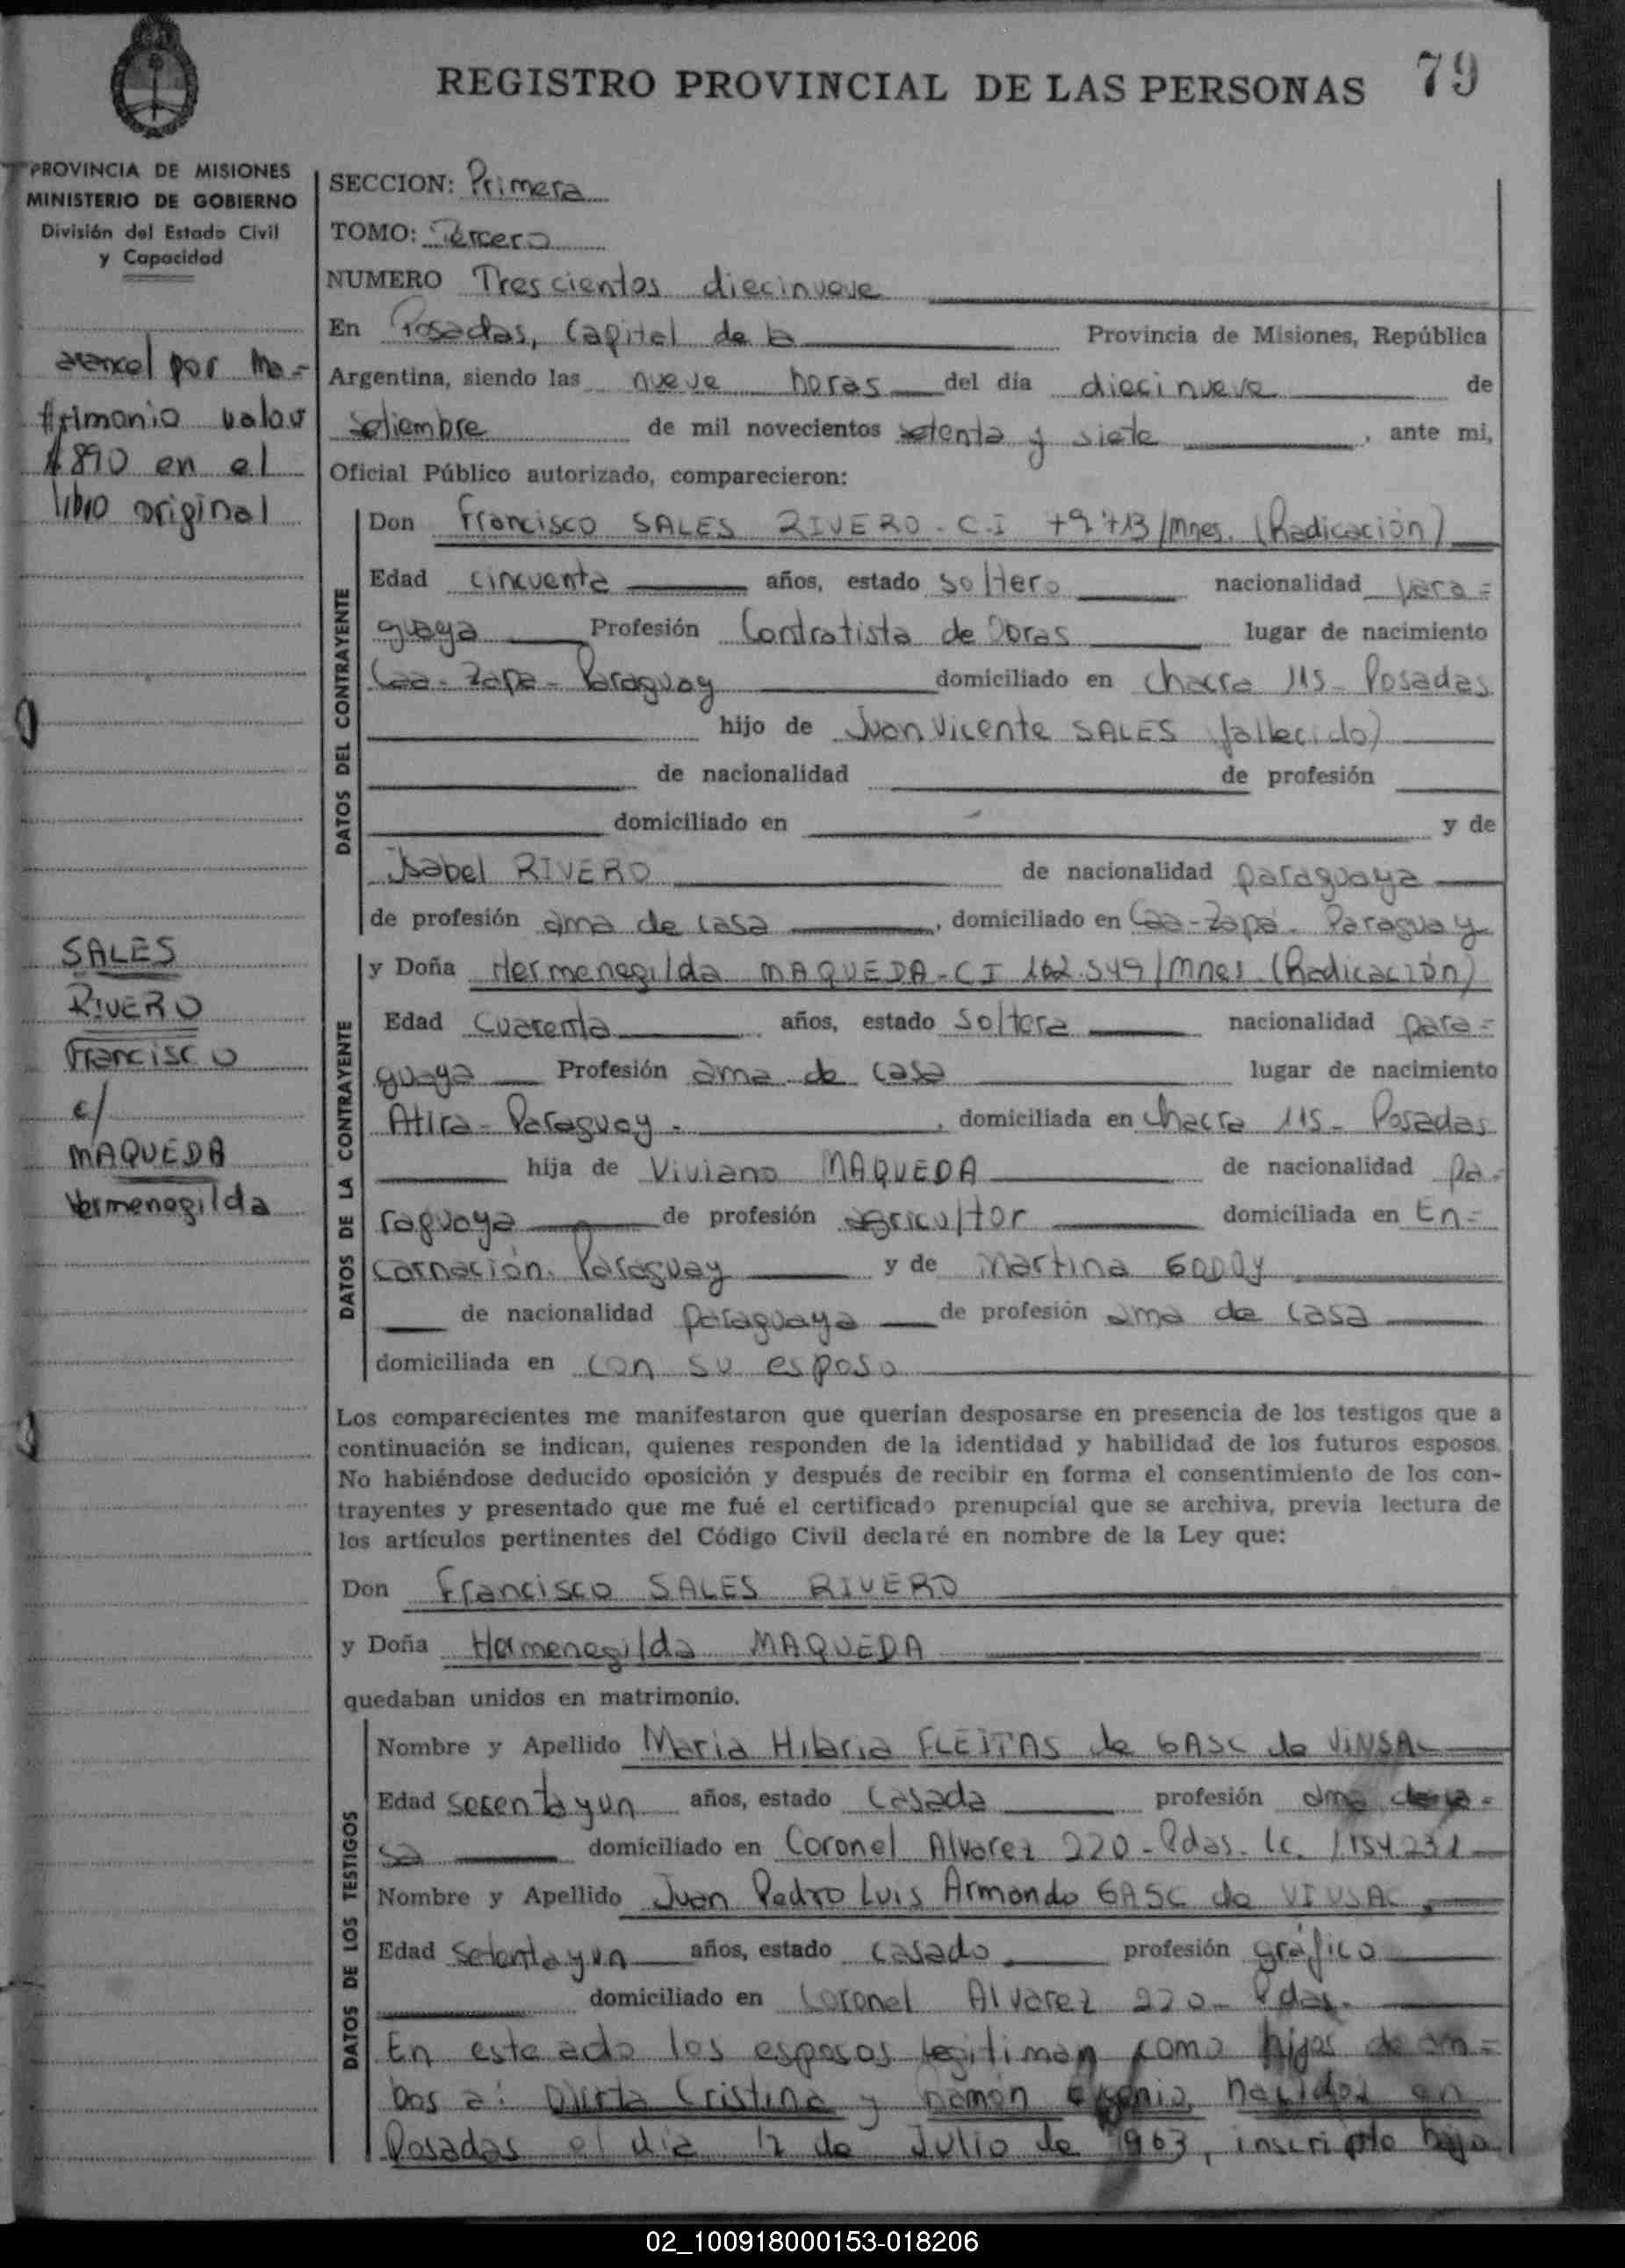 REGISTRO PROVINCIAL DE LAS PERSONAS 79
PROVINCIA DE MISIONES
MINISTERIO DE GOBIERNO
División del Estado Civil
y Capacidad
arancel por ma-
trimonio valor
$ 890 en el
libro original
SALES
RIVERO
Francisco
c/
MAQUEDA
Hermenegilda
SECCION: Primera
TOMO: Tercero
NUMERO Trescientos diecinueve
En Posadas, Capital de la Provincia de Misiones, República
Argentina, siendo las nueve horas del día diecinueve de
setiembre de mil novecientos setenta y siete, ante mi,
Oficial Público autorizado, comparecieron:
DATOS DEL CONTRAYENTE
Don Francisco SALES RIVERO - C.I /Mnes. (Radicación)
Edad cincuenta años, estado soltero nacionalidad para=
guaya Profesión Contratista de Obras lugar de nacimiento
Caa-Zapa - Paraguay domiciliado en chacra 115 - Posadas
hijo de Juan Vicente SALES (fallecido)
de nacionalidad de profesión
domiciliado en y de
Isabel RIVERO de nacionalidad paraguaya
de profesión ama de casa, domiciliado en Caa-Zapa. Paraguay
DATOS DE LA CONTRAYENTE
y Doña Hermenegilda MAQUEDA - CI 162.549/Mnes (Radicación)
Edad cuarenta años, estado soltera nacionalidad para=
guaya Profesión ama de casa lugar de nacimiento
Atira - Paraguay -, domiciliada en chacra 115 - Posadas
hija de Viviano MAQUEDA de nacionalidad pa-
raguaya de profesión agricultor domiciliada en En=
carnación. Paraguay y de Martina GODOY
de nacionalidad paraguaya de profesión ama de casa
domiciliada en con su esposo
Los comparecientes me manifestaron que querían desposarse en presencia de los testigos que a
continuación se indican, quienes responden de la identidad y habilidad de los futuros esposos.
No habiéndose deducido oposición y después de recibir en forma el consentimiento de los con-
trayentes y presentado que me fué el certificado prenupcial que se archiva, previa lectura de
los artículos pertinentes del Código Civil declaré en nombre de la Ley que:
Don Francisco SALES RIVERO
y Doña Hermenegilda MAQUEDA
quedaban unidos en matrimonio.
DATOS DE LOS TESTIGOS
Nombre y Apellido Maria Hilaria FLEITAS de GASC de VINSAC
Edad sesentayun años, estado casada profesión ama de ca=
sa domiciliado en Coronel Alvarez 220 - Pdas. lc. 1154231
Nombre y Apellido Juan Pedro Luis Armando GASC de VINSAC
Edad setentayun años, estado casado profesión gráfico
domiciliado en Coronel Alvarez 220 - Pdas.
En este acto los esposos legitiman como hijos de am=
bos a: Cristina y Ramón nacidos en
Posadas el día 12 de Julio de 1963, inscripto bajo
02_100918000153-018206